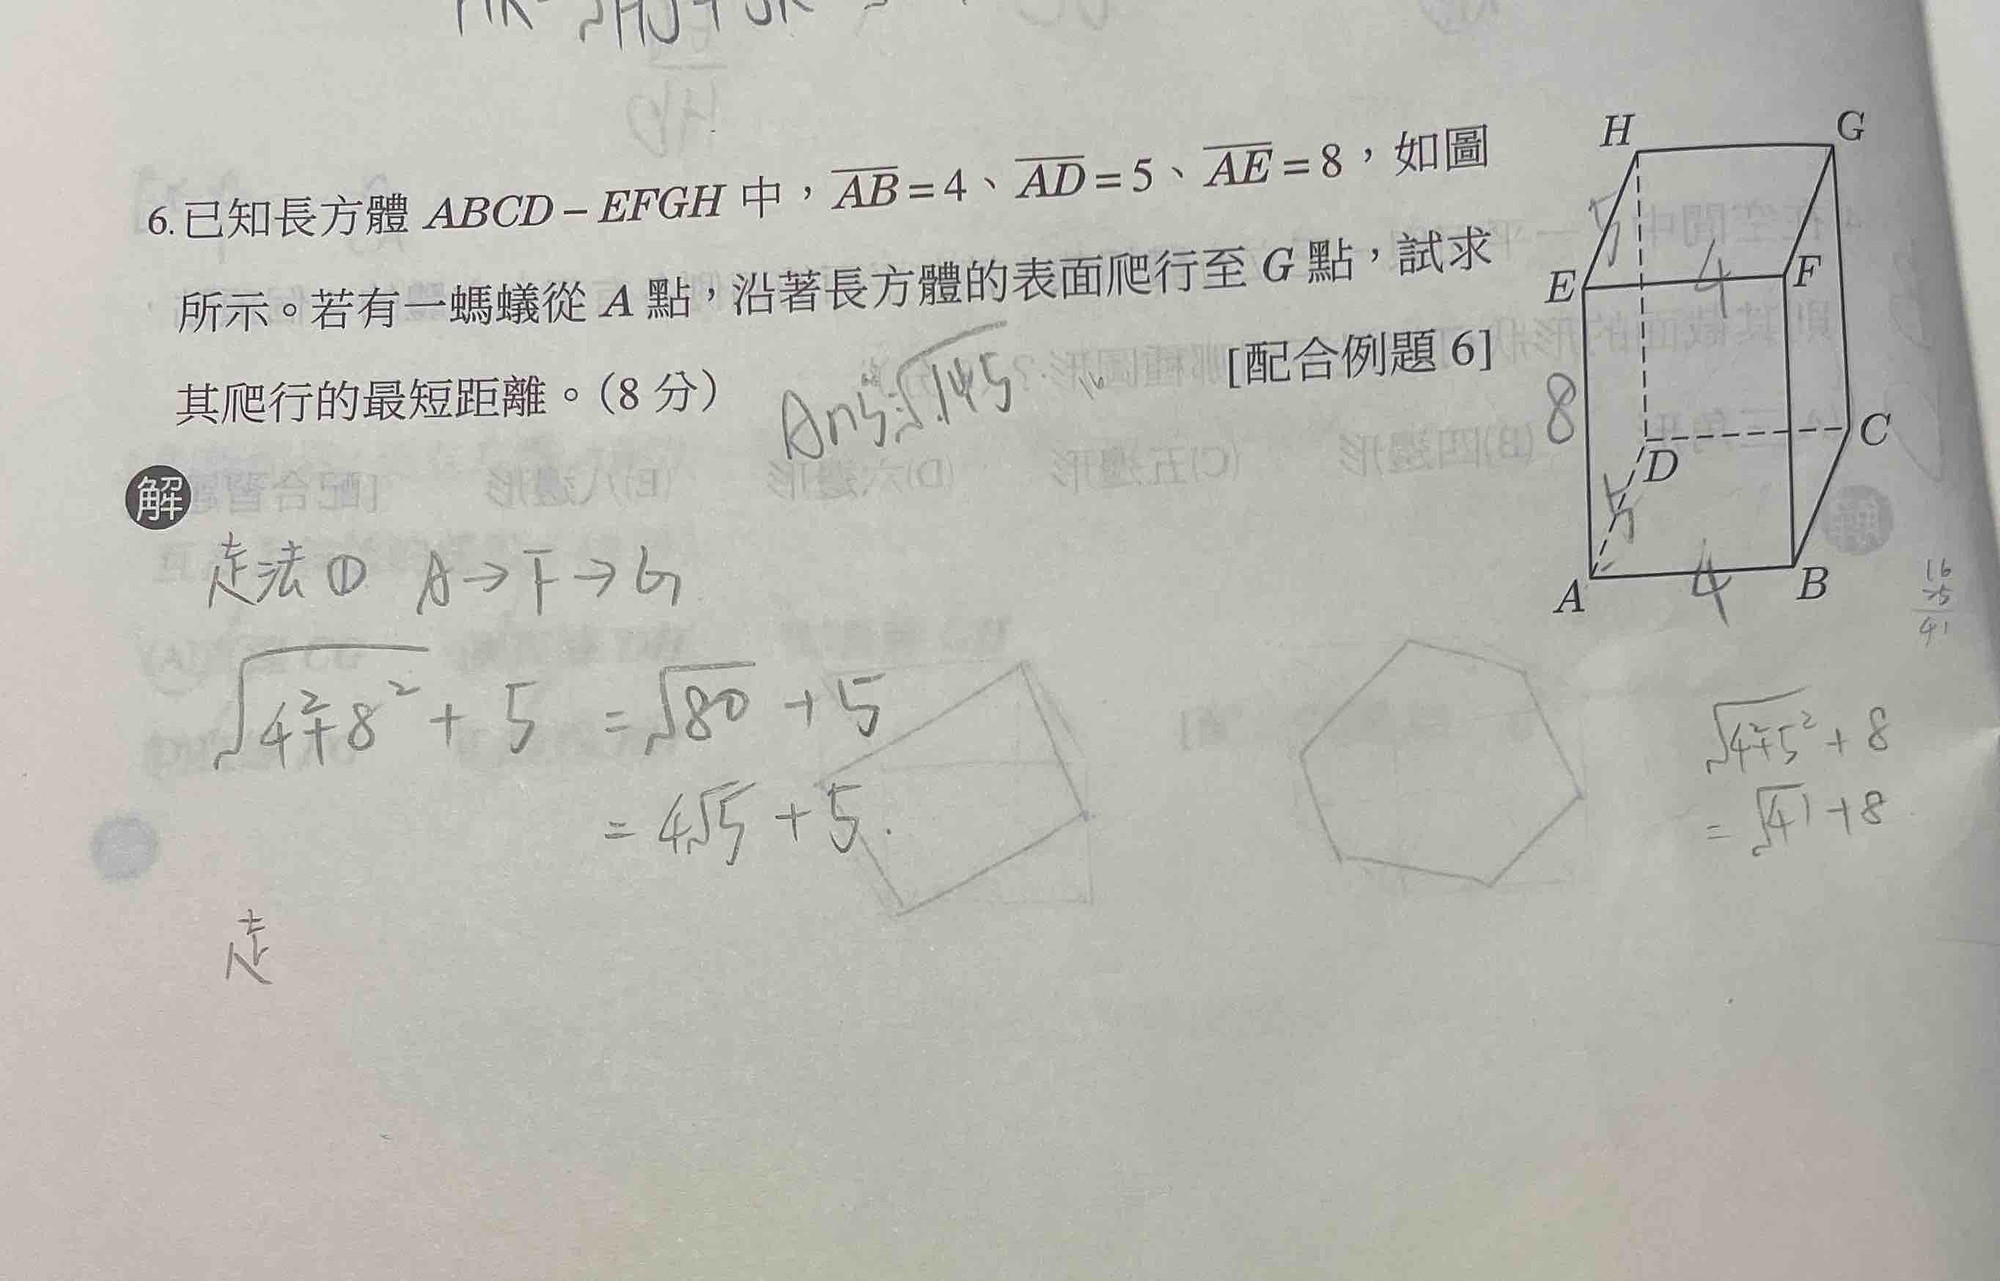 6.已知長方體 ABCD－EFGH 中，AB=4、AD=5、AE=8，如圖
所示。若有一螞蟻從 A 點，沿著長方體的表面爬行至 G 點，試求
其爬行的最短距離。（8 分）
[配合例題 6]
Ans:√145
H
G
5
4
E
F
8
C
D
5
4
A
B
解
走法① A→F→G
√4²+8² + 5 = √80 + 5
= 4√5 + 5.
走
16
25
41
√4²+5² + 8
= √41 + 8